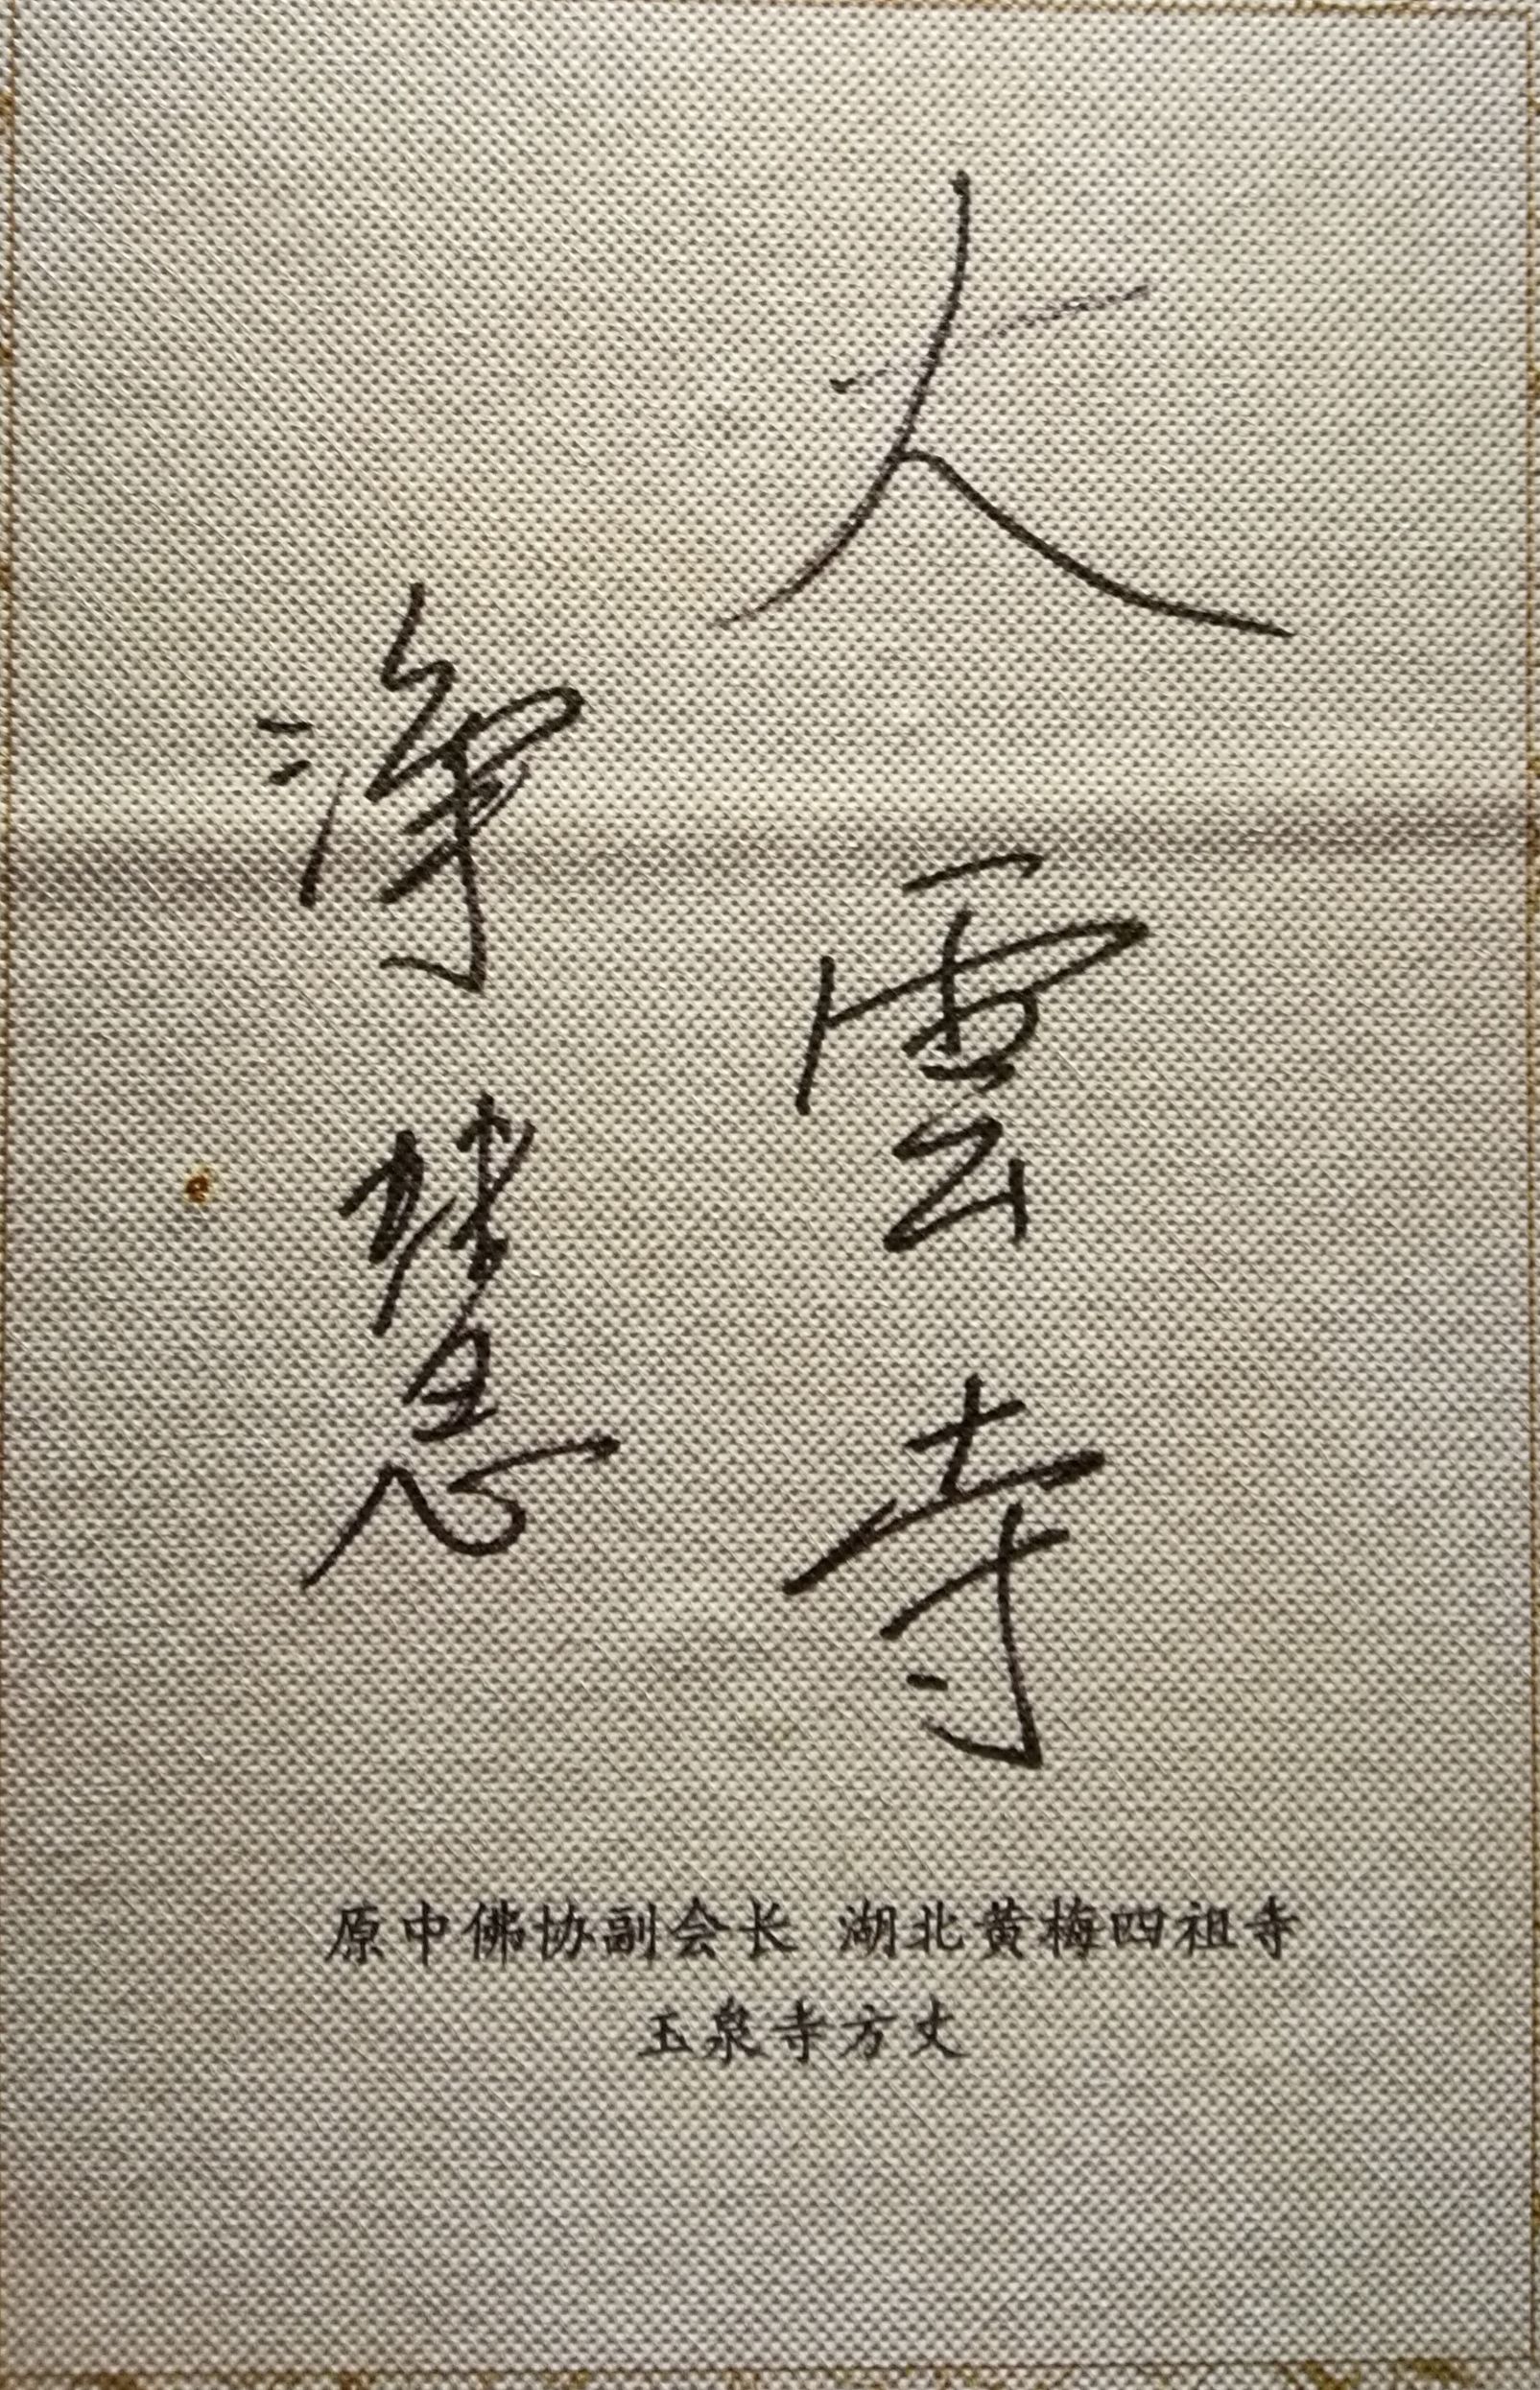 大雲寺
淨慧
原中佛协副会长 湖北黄梅四祖寺
玉泉寺方丈